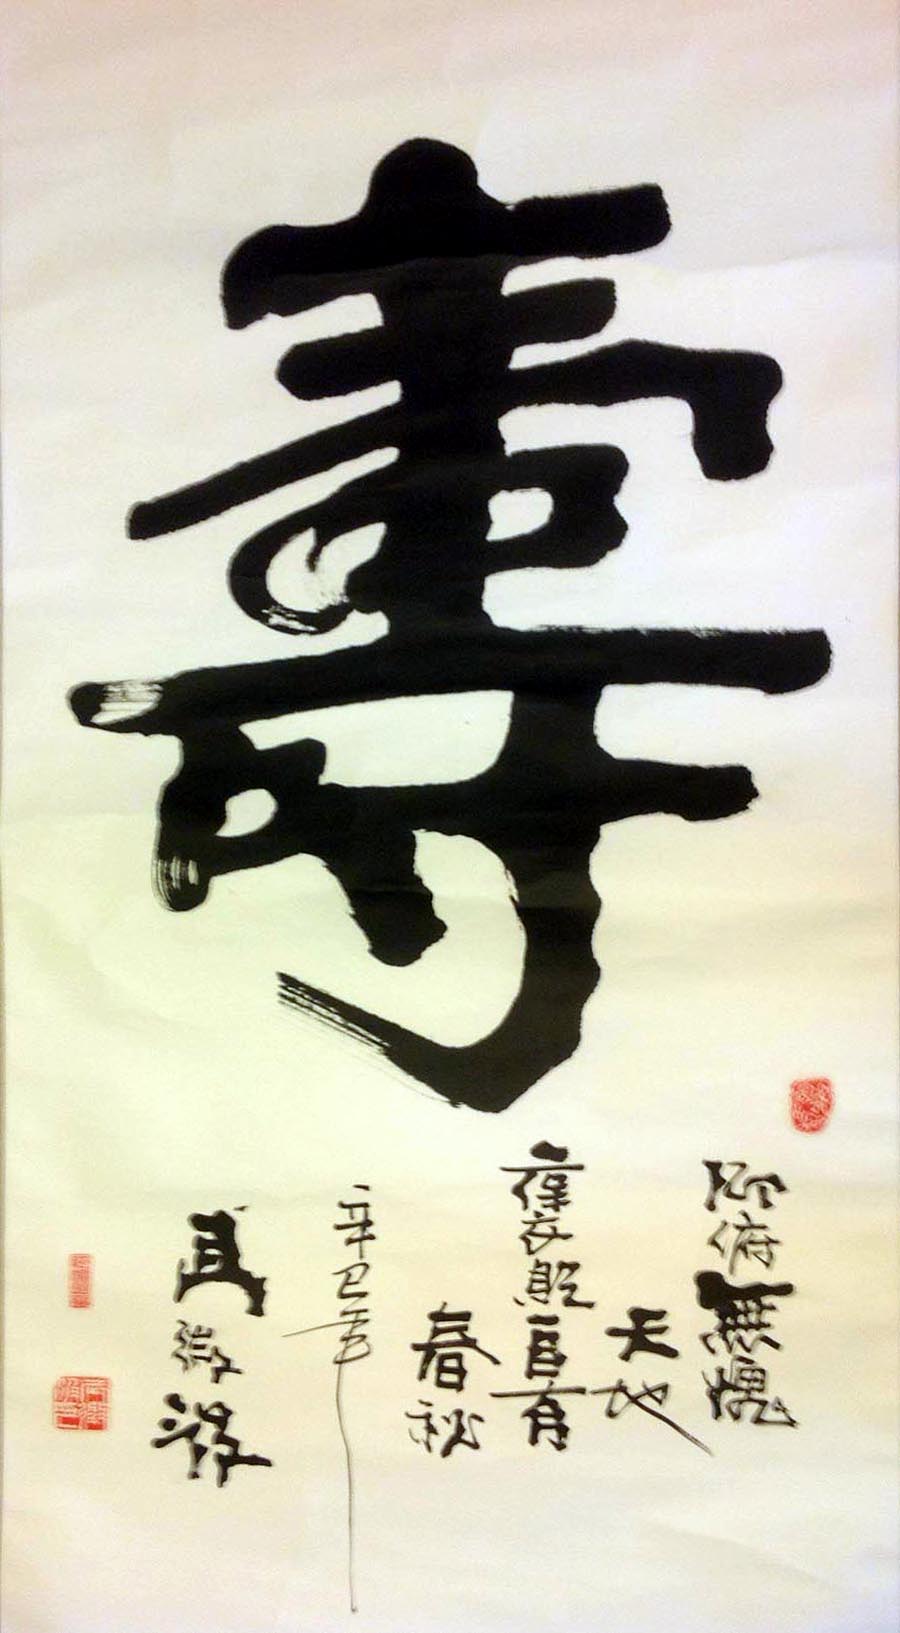 壽
仰俯無愧
天地
褒貶自有
春秋
辛巳年